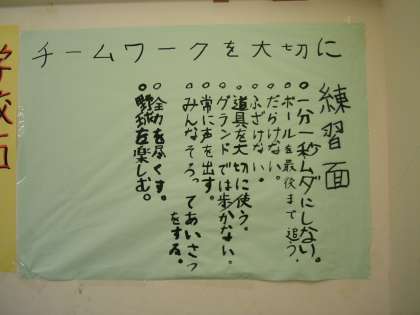 チームワークを大切に
練習面
○一分一秒ムダにしない。
○ボールを最後まで追う。
○だらけない。
○ふざけない。
○道具を大切に使う。
○グランドでは歩かない。
○常に声を出す。
○みんなそろってあいさつ
をする。
○全力を尽くす。
○野球を楽しむ。
学校